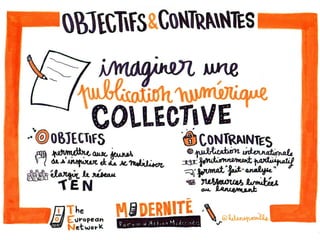 OBJECTIFS & CONTRAINTES
imaginer une
publication numérique
COLLECTIVE
OBJECTIFS
permettre aux jeunes
de s'inspirer et de se mobiliser
élargir le réseau
TEN
CONTRAINTES
publication internationale
fonctionnement participatif
format "fait-analyse"
ressources limitées
au lancement
The
European
Network
MODERNITÉ